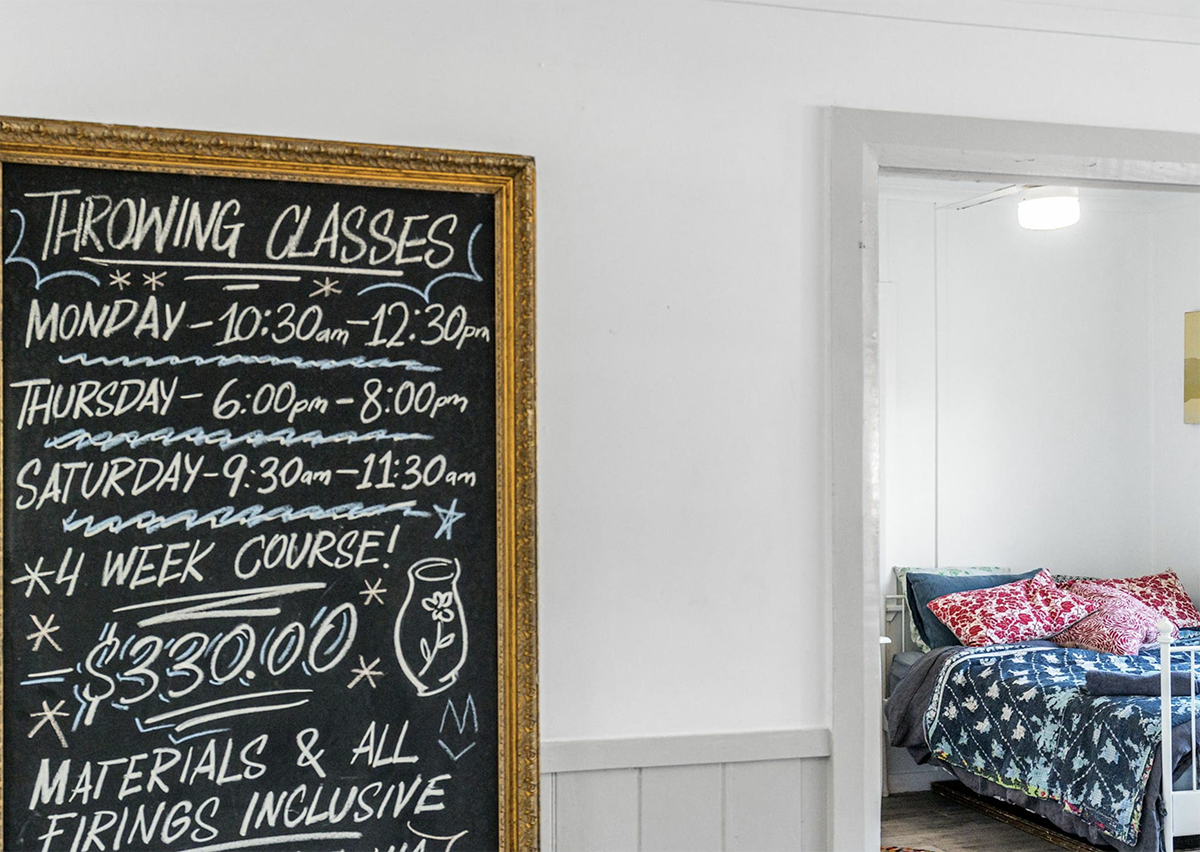 THROWING CLASSES
MONDAY - 10:30am - 12:30pm
THURSDAY - 6:00pm - 8:00pm
SATURDAY - 9:30am - 11:30am
*4 WEEK COURSE!
$330.00
MATERIALS & ALL
FIRINGS INCLUSIVE